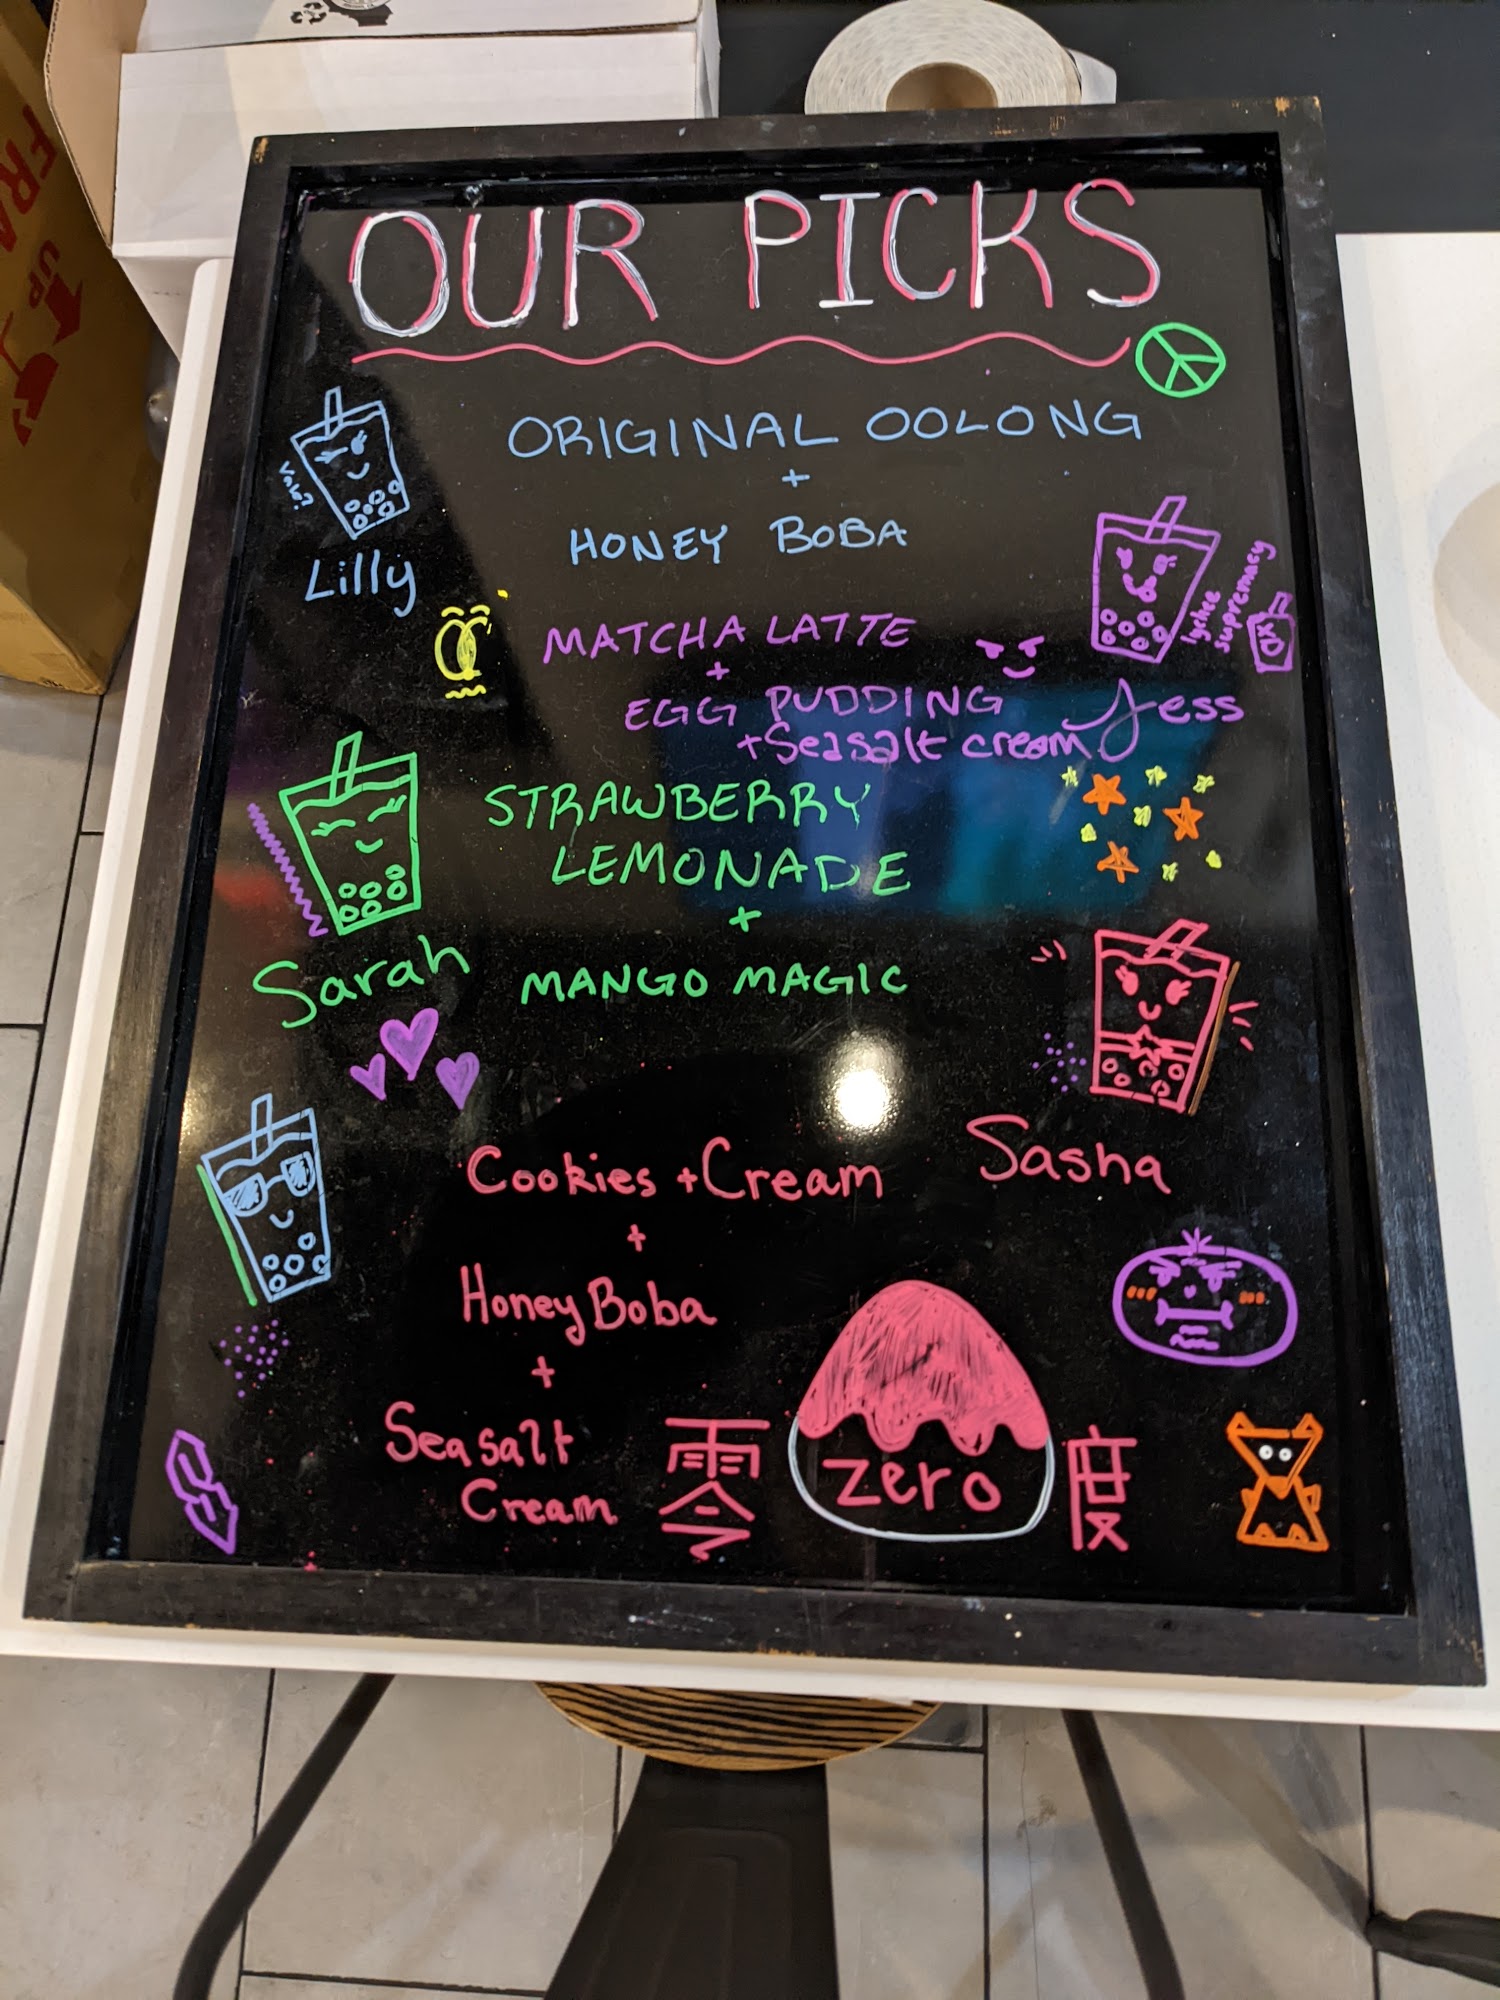 OUR PICKS
ORIGINAL OOLONG
+
HONEY BOBA
Lilly
lychee
supremacy
MATCHA LATTE
+
EGG PUDDING
+Seasalt cream
Jess
STRAWBERRY
LEMONADE
+
MANGO MAGIC
Sarah
Cookies + Cream
+
Honey Boba
+
Seasalt
Cream
Sasha
零
zero
度
FRA
UP